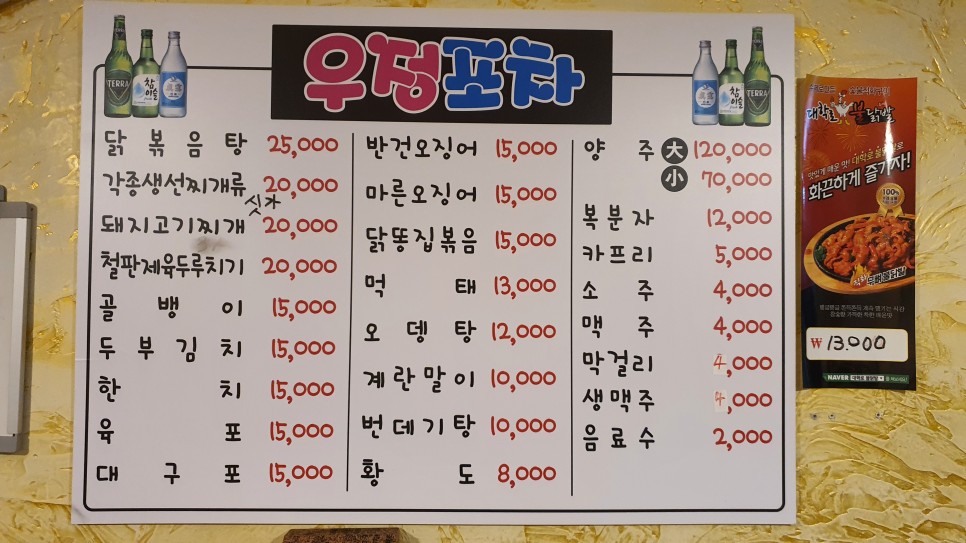 우정포차
TERRA
참이슬
TERRA
참이슬
닭볶음탕 25,000
각종생선찌개류 20,000
싯가
돼지고기찌개 20,000
철판제육두루치기 20,000
골뱅이 15,000
두부김치 15,000
한치 15,000
육포 15,000
대구포 15,000
반건오징어 15,000
마른오징어 15,000
닭똥집볶음 15,000
먹태 13,000
오뎅탕 12,000
계란말이 10,000
번데기탕 10,000
황도 8,000
양주 大 120,000
小 70,000
복분자 12,000
카프리 5,000
소주 4,000
맥주 4,000
막걸리 4,000
생맥주 4,000
음료수 2,000
대학로 불닭발
맛있게 매운 맛! 대학로 불닭발로
화끈하게 즐기자!
100%
직화 무뼈불닭발
₩ 13.000
NAVER